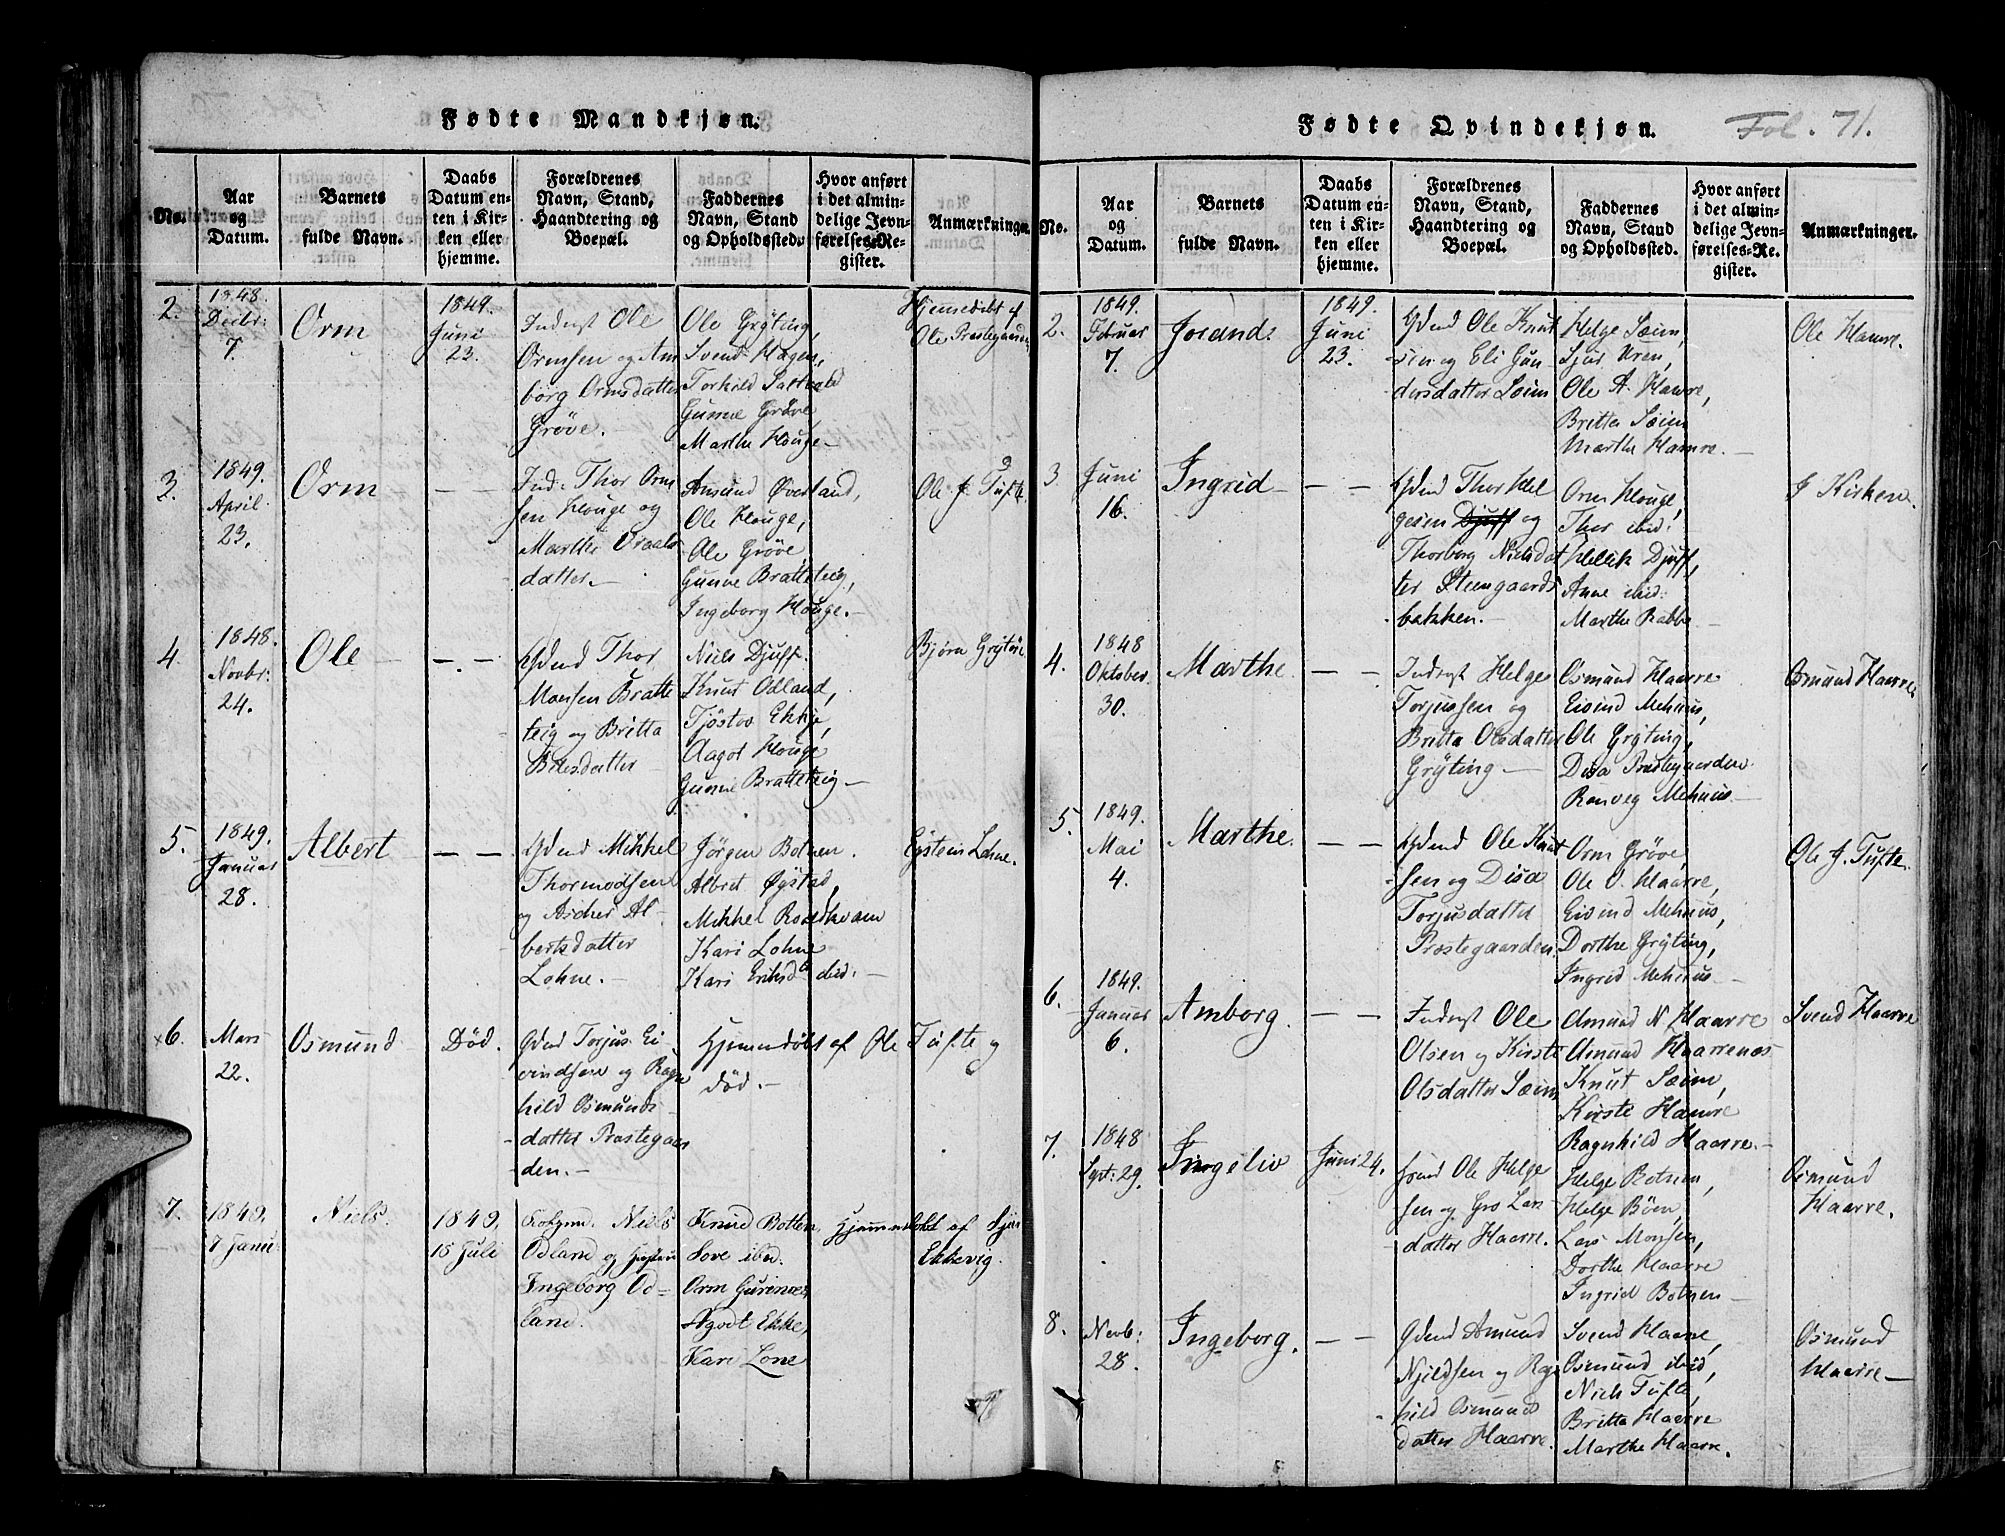 Fødte Mandkjøn.
No.
Aar
og
Datum.
Barnets
fulde Navn.
Daabs
Datum en-
ten i Kir-
ken eller
hjemme.
Forældrenes
Navn, Stand,
Haandtering og
Boepæl.
Faddernes
Navn, Stand
og Opholdssted.
Hvor anført
i det almin-
delige Jevn-
førelses-Re-
gister.
Anmærkninger.
2.
1848.
Decbr:
7.
Orm
1849.
Juni
23.
Inderst Ole
Ormsen og Am
borg Ormsdatter
Grøve.
Ole Grÿting,
Svend Hagen,
Torkild
Gunne Grøve
Marthe Houge.
Hjemedøbt af
Ole Præstegaarden
3.
1849.
April
23.
Orm
— —
Ind: Thor Orm
sen Houge og
Marthe
datter.
Amund Øverland,
Ole Houge,
Ole Grøve
Gunne Bratteteig,
Ingeborg Houge.
Ole J. Tufte
4.
1848.
Novbr:
24.
Ole
— . —
Gdmd Thor
Monsen Bratte
teig og Britta
datter
Niels Djuff.
Knut Odland,
Tjøstov Ekkje,
Aagot Houge
Gunne Bratteteig
Bjørn
5.
1849.
Januar
28.
Albert
— —
Gdmd Mikkel
Thormodsen
og Al-
bertsdatter
Lohne.
Jørgen Botnen.
Albret Øystad,
Mikkel
Kari Lohne
Kari Eriksd ibid:
Eystein Lohne.
x6.
Mars
22.
Osmund
Død.
Gdmd Torjus Ei
vindsen og Ragn
hild Osmunds
datter Præstegaar
den.
Hjemmedøbt af Ole Tufte og
død.
7.
1849.
8 Janu
Niels.
1849.
15 Juli
Niels
Odland og Hustru
Ingeborg Od-
land.
Knud Botten
Sove ibd.
Orm
Agodt Ekke,
Kari Lone
Hjemmedøbt af
Ekkevig.
Fødte Qvindekjøn.
Fol. 71.
No.
Aar
og
Datum.
Barnets
fulde Navn.
Daabs
Datum en-
ten i Kir-
ken eller
hjemme.
Forældrenes
Navn, Stand,
Haandtering og
Boepæl.
Faddernes
Navn, Stand
og Opholdssted.
Hvor anført
i det almin-
delige Jevn-
førelses-Re-
gister.
Anmærkninger.
2.
1849.
Februar
7.
Jorand.
1849.
Juni
23.
Gdmd Ole Knut
sen og Eli Gun
dersdatter Sæim
Helge Sæim,
Sjur Uren,
Ole A. Hamre,
Britta Sæim
Marthe Hamre.
Ole Hamre.
3
Juni
16.
Ingrid
— —
Gdmd Thor Hel
gesen Djuff og
Thorborg Nielsdat
ter Steengaards
bakken.
Orm Houge,
Thor ibid:
Hellik Djuff,
Anne ibid:
Marthe Rabbe
I Kirken.
4.
1848
Oktober
30.
Marthe
— —
Inderst Helge
Torjussen og
Britta Olsdatter
Grÿting
Osmund Haarre
Eivind Mehuus,
Ole Grÿting,
Disa Præstegaarden
Ranveg Mehuus
Osmund Haarre
5.
1849.
Mai
4.
Marthe.
— —
Gdmd Ole Knut
sen og Disa
Torjusdatter
Præstegaarden
Orm Grøve,
Ole O. Haarre,
Eivind Mehuus,
Dorthe Grÿting,
Ingrid Mehuus
Ole J. Tufte.
6.
1849.
Januar
6.
Amborg.
— —
Inderst Ole
Olsen og Kirste
Olsdatter Sæim
Amund N. Haarre
Amund Haarrenæs
Knut Sæim,
Kirste Hamre
Ragnhild Haarre.
Svend Haarre
7.
1848
Sept: 29.
Ingeliv
Juni 24.
Ole Helge
sen og Gro Lars
datter Haarre.
Helge Botnen,
Helge Bøen,
Lars Monsen,
Dorthe Haarre
Ingrid Botnen
Osmund
Haarre.
8.
Novb:
28.
Ingeborg.
— —
Gdmd Amund
Njeldsen og Rag
hild Osmunds
datter Haarre.
Svend Haarre,
Osmund ibid,
Niels Tufte,
Britta Haarre
Marthe Haarre.
Osmund
Haarre